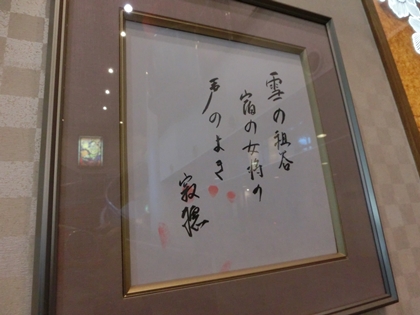 雪の祖谷
宿の女将の
声のよき
寂聴